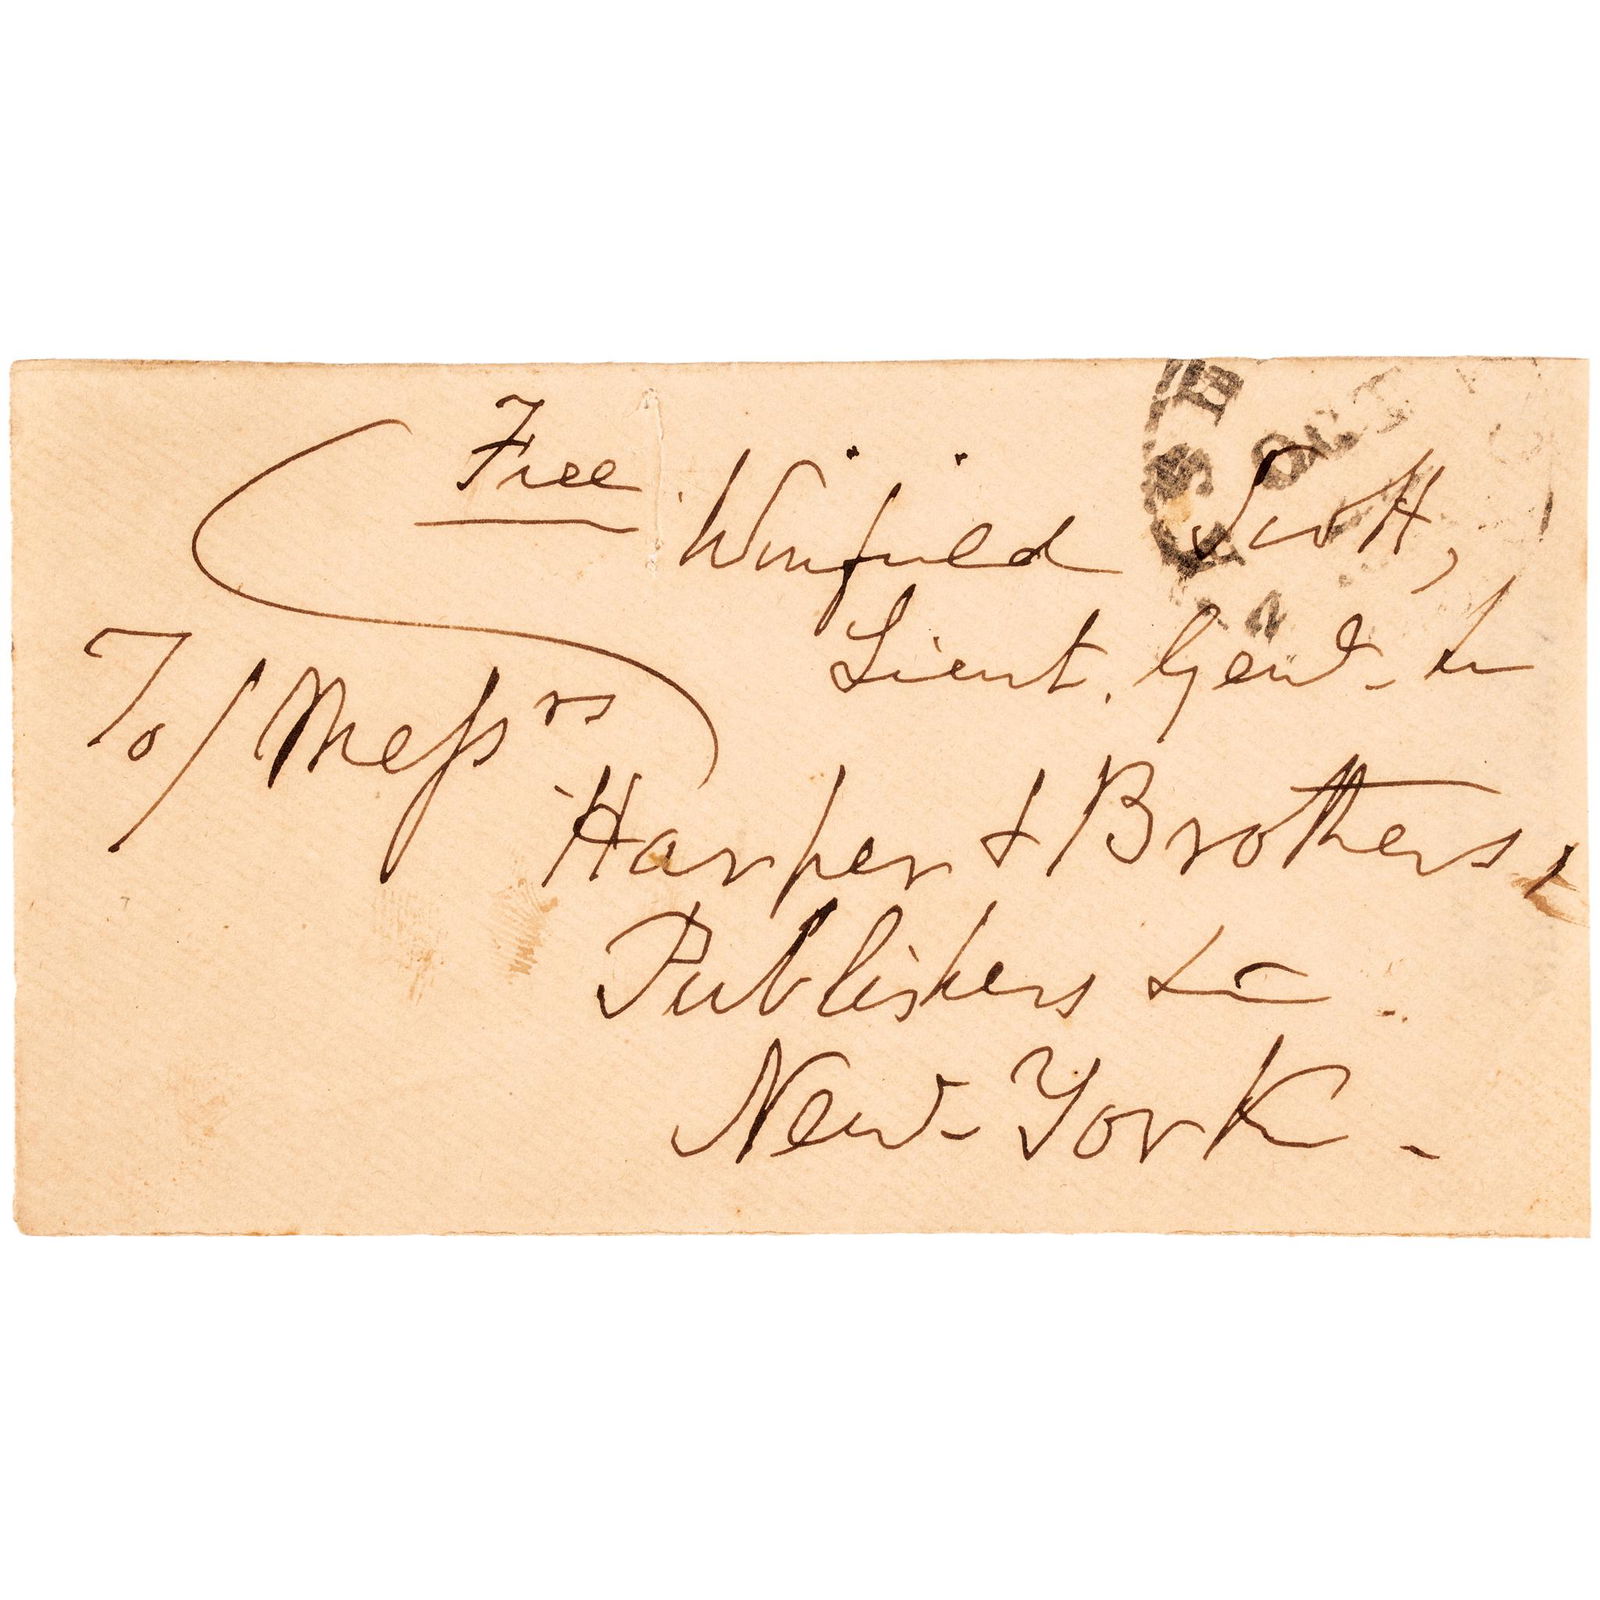 Free
Winfield Scott,
Lieut. Genl. &c
To/ Messrs
Harper & Brothers,
Publishers &c
New-York.
OCT